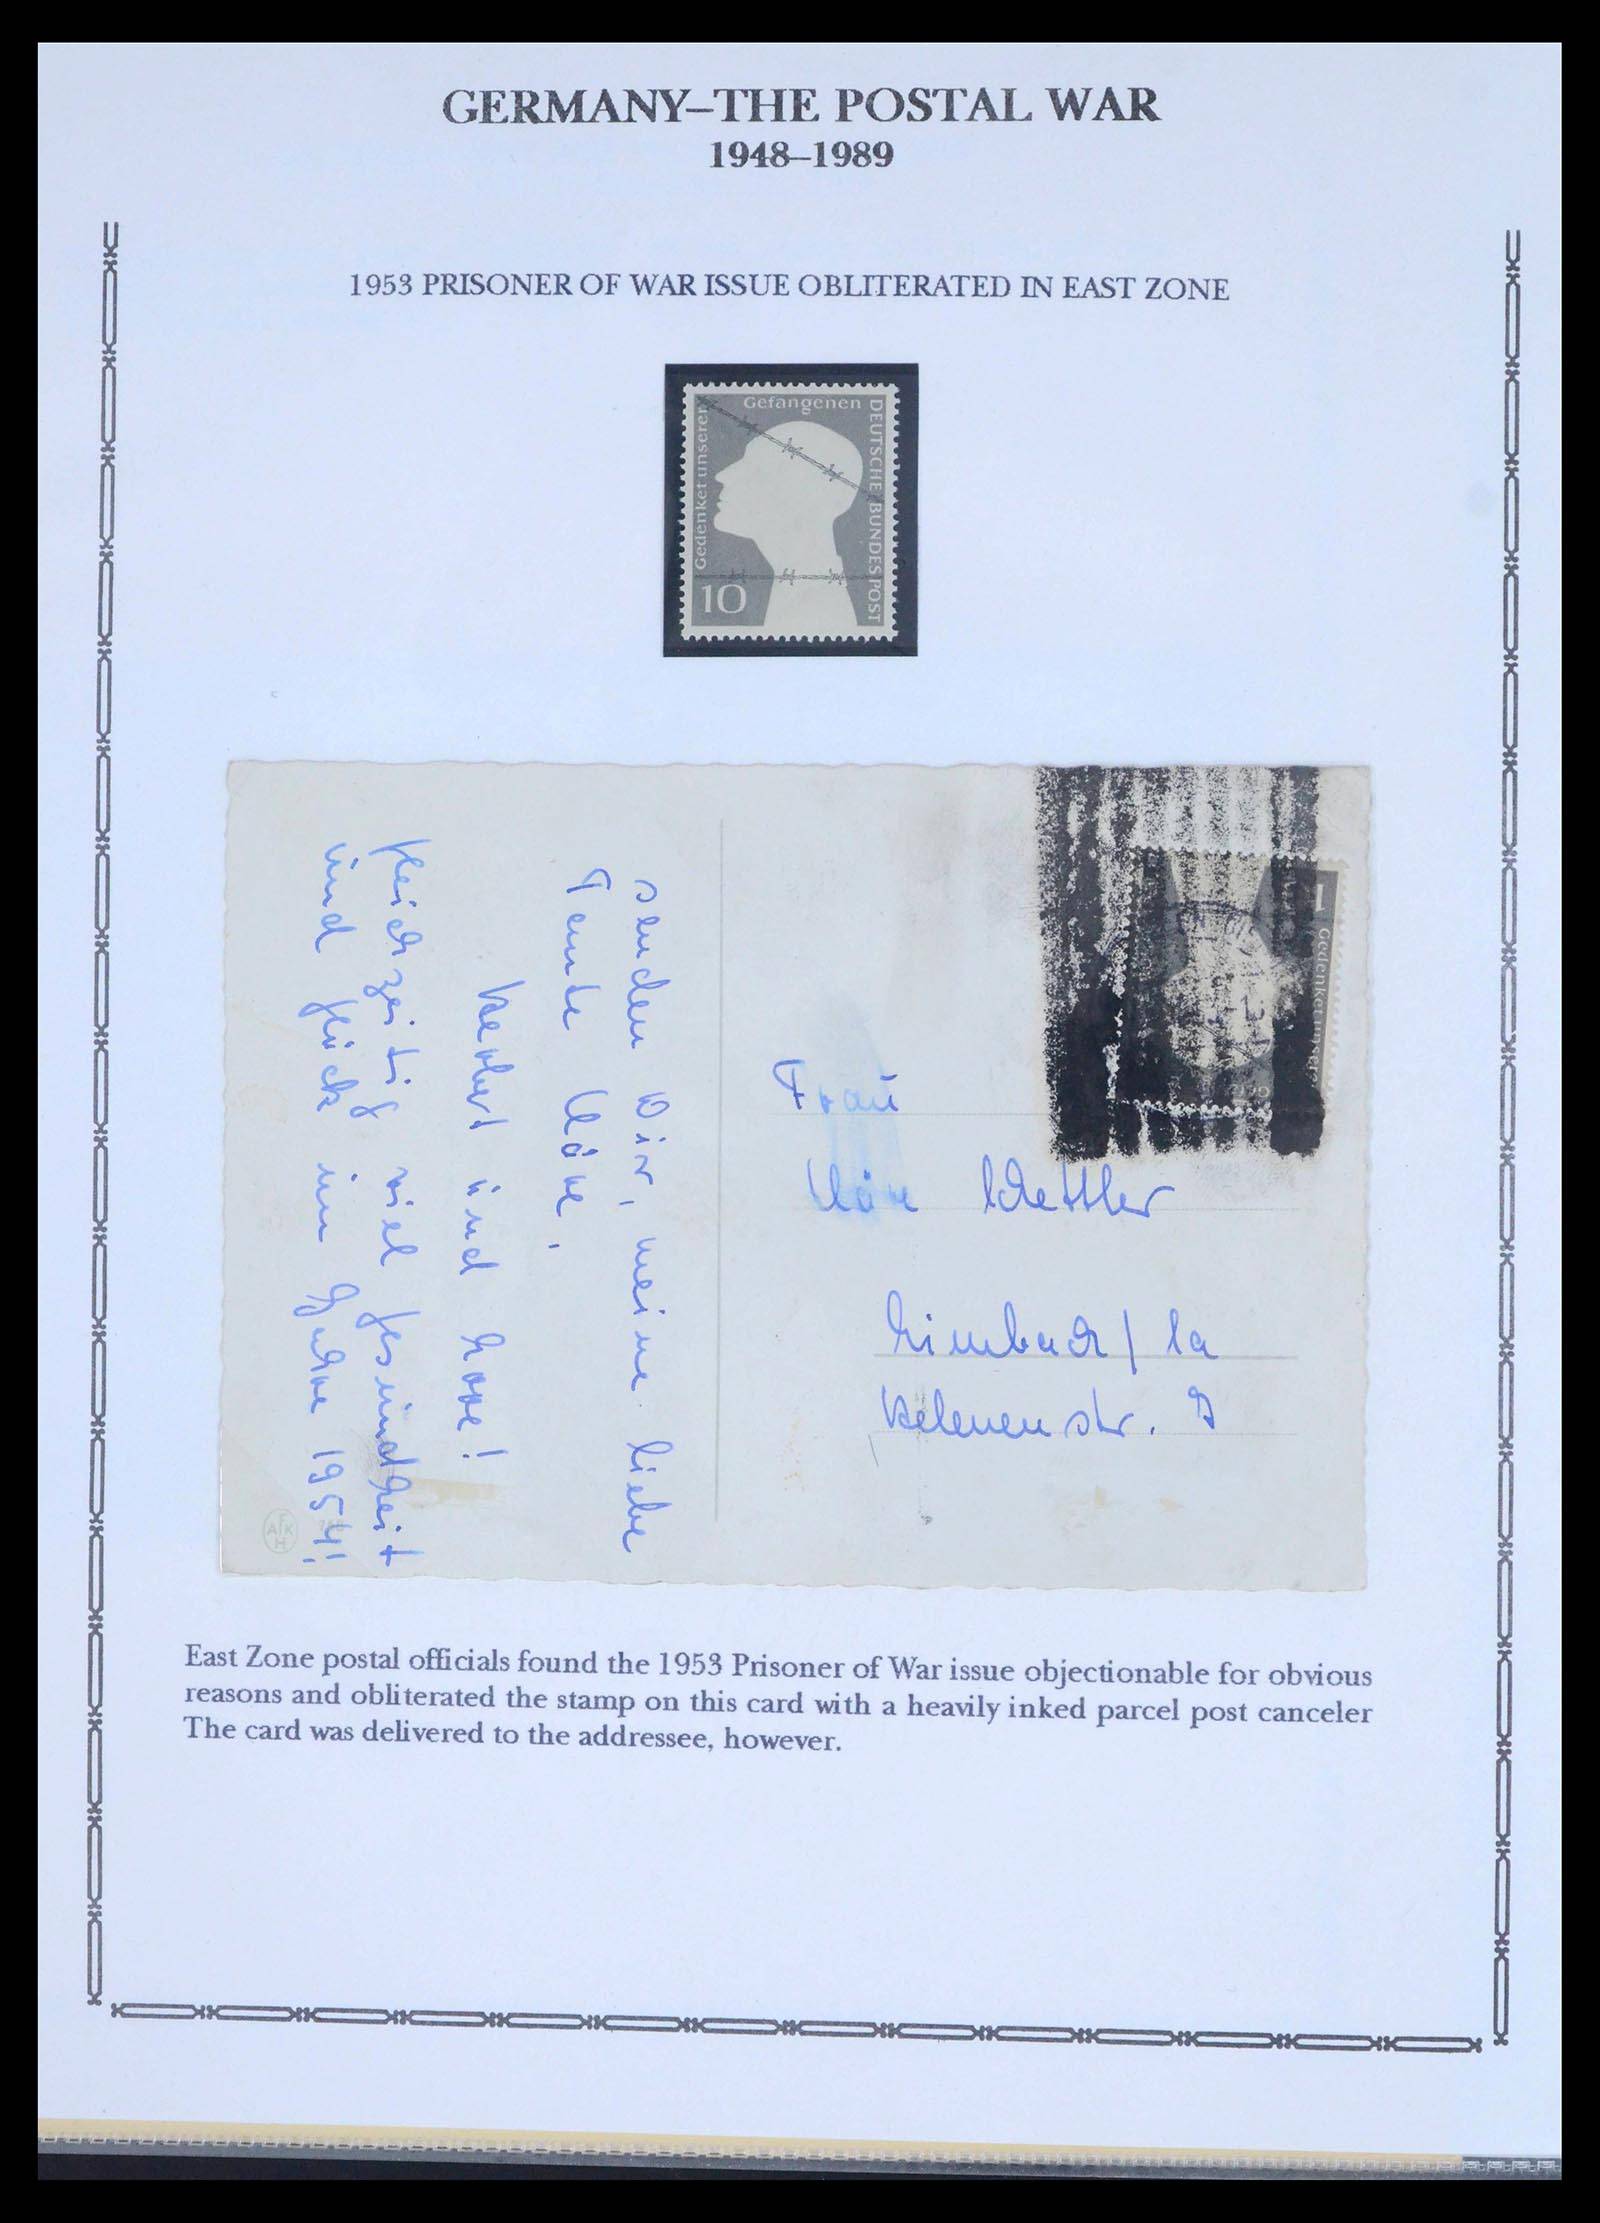 GERMANY–THE POSTAL WAR
1948–1989
1953 PRISONER OF WAR ISSUE OBLITERATED IN EAST ZONE
Gedenket unserer
Gefangenen
DEUTSCHE BUNDESPOST
10
senden Dir, meine liebe
Tante Kläre,
Herbert und Lore!
Gleichzeitig viel Gesundheit
und Glück im Jahre 1954!
AFKH
1
Gedenket unserer
Frau
Kläre
Limbach / Sa
Helenenstr. 9
East Zone postal officials found the 1953 Prisoner of War issue objectionable for obvious
reasons and obliterated the stamp on this card with a heavily inked parcel post canceler
The card was delivered to the addressee, however.